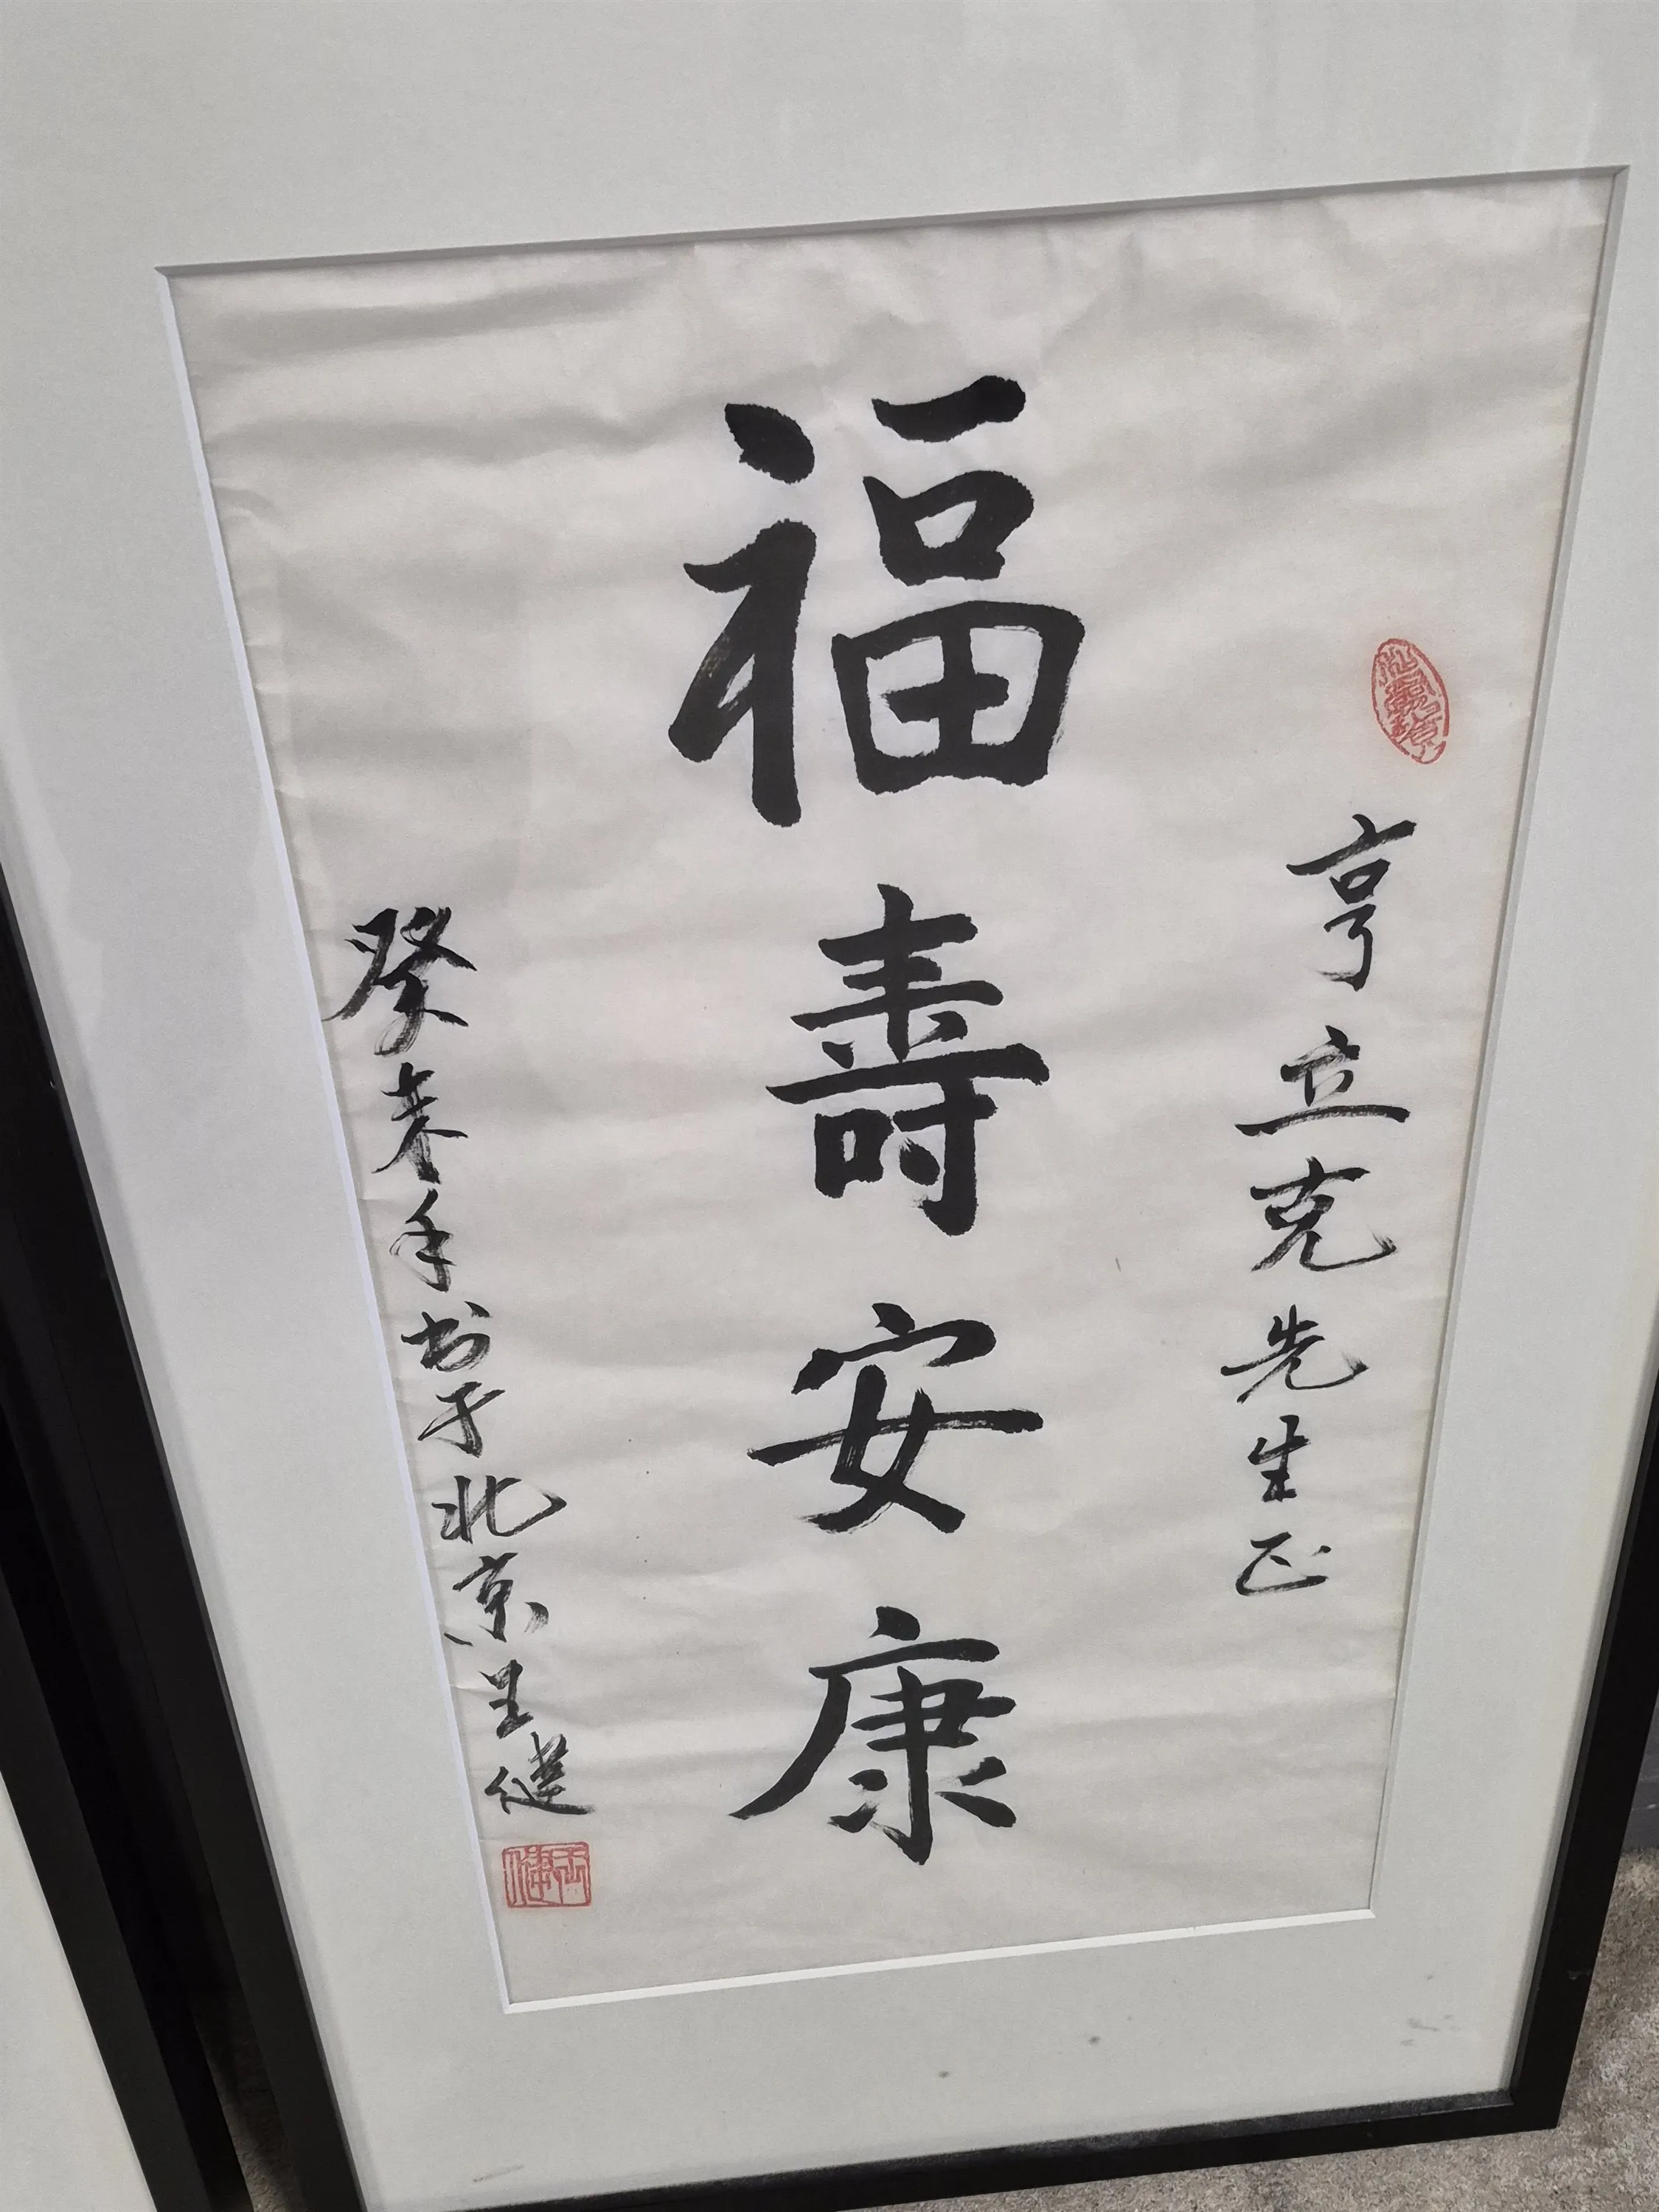 亨立克先生正
福壽安康
癸未年书于北京王健